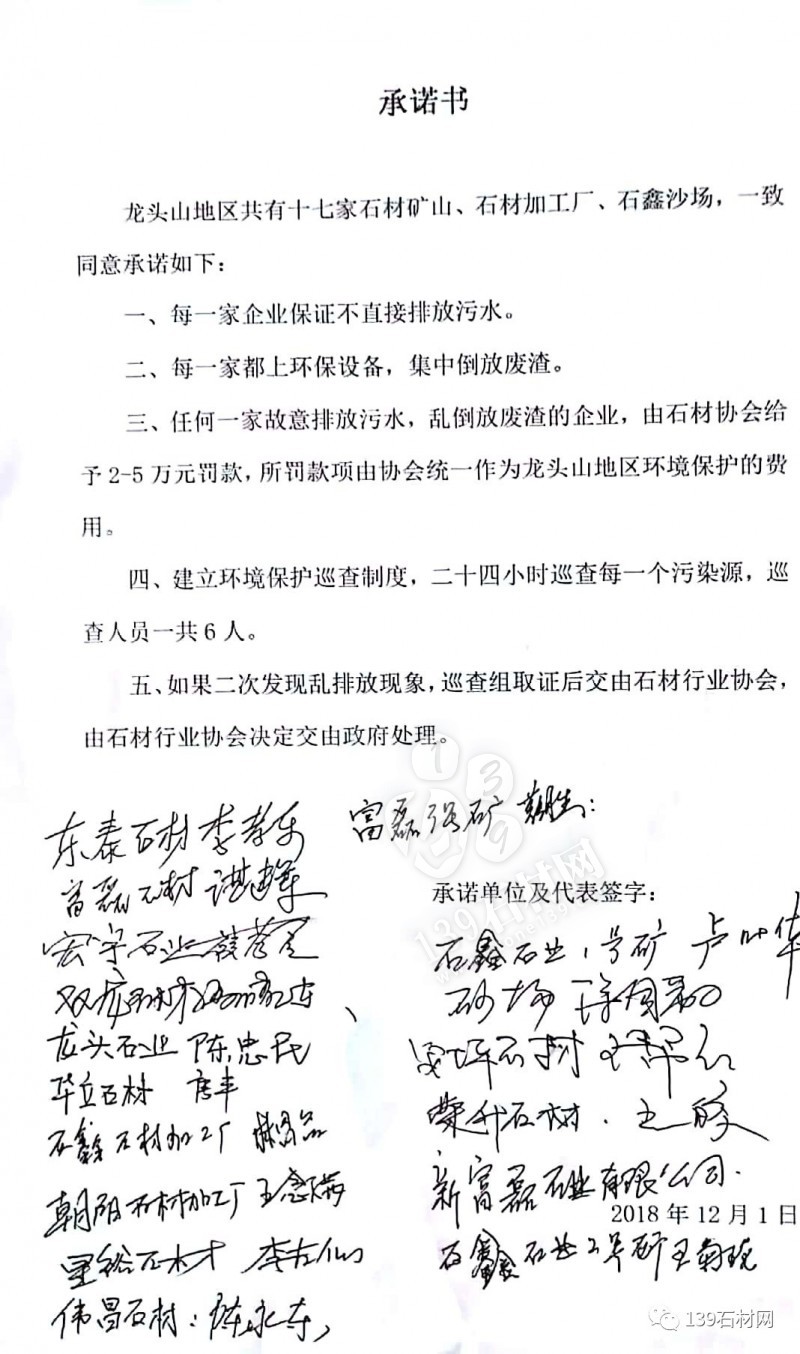 承诺书
龙头山地区共有十七家石材矿山、石材加工厂、石鑫沙场，一致
同意承诺如下：
一、每一家企业保证不直接排放污水。
二、每一家都上环保设备，集中倒放废渣。
三、任何一家故意排放污水，乱倒放废渣的企业，由石材协会给
予2-5万元罚款，所罚款项由协会统一作为龙头山地区环境保护的费
用。
四、建立环境保护巡查制度，二十四小时巡查每一个污染源，巡
查人员一共6人。
五、如果二次发现乱排放现象，巡查组取证后交由石材行业协会，
由石材行业协会决定交由政府处理。
富磊强矿
东泰石材 李孝东
富磊石材 谌建军
宏宇石业
龙头石业 陈忠民
华立石材 唐丰
石鑫石材加工厂
朝阳石材加工厂 王念满
石材
伟昌石材：陈永东
承诺单位及代表签字：
石鑫石业1号矿 卢叶华
砂场
石材
荣升石材. 王
新富磊石业有限公司.
2018年12月1日
石鑫石业2号矿 王菊琼
139石材网
139石材网